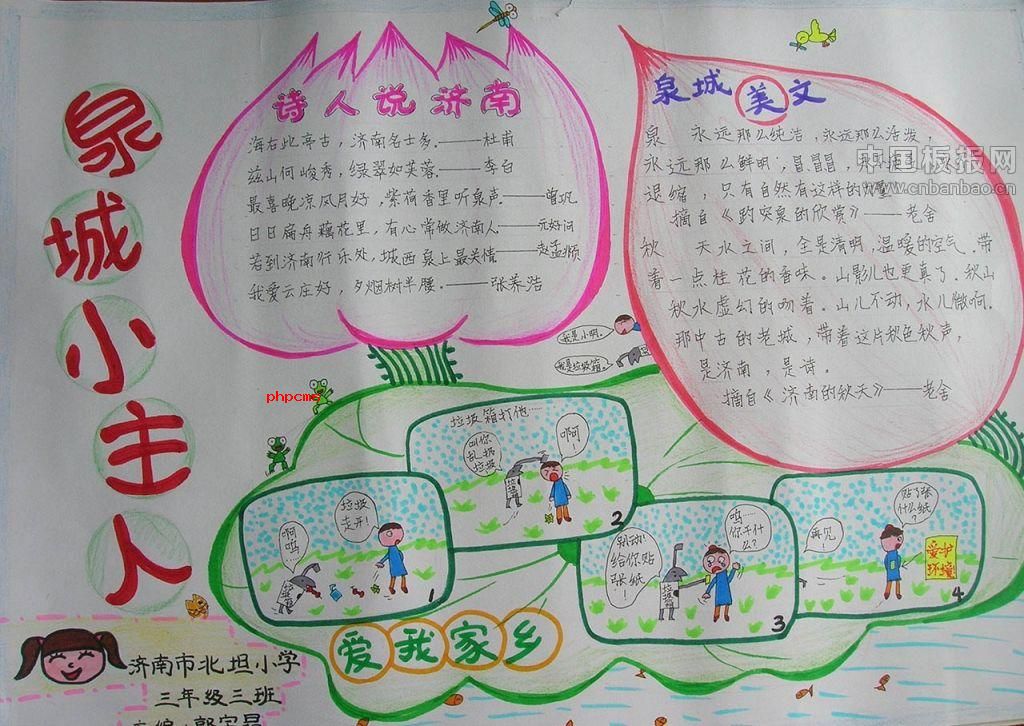 泉城小主人
诗人说济南
海右此亭古，济南名士多。——杜甫
兹山何峻秀，绿翠如芙蓉。——李白
最喜晚凉风月好，紫荷香里听泉声。——曾巩
日日扁舟藕花里，有心常做济南人——元好问
若到济南行乐处，城西泉上最关情——赵孟頫
我爱云庄好，夕烟树半腰。——张养浩
泉城美文
泉 永远那么纯洁，永远那么活泼，
永远那么鲜明，冒冒冒，
退缩，只有自然有这样的力量
摘自《趵突泉的欣赏》——老舍
秋 天水之间，全是清明，温暖的空气，带
着一点桂花的香味。山影儿也更真了，秋山
秋水虚幻的吻着。山儿不动，水儿微响。
那中古的老城，带着这片秋色秋声，
是济南，是诗。
摘自《济南的秋天》——老舍
中国板报网
www.cnbanbao.cn
我是小明。
我是垃圾箱。
phpcms
垃圾走开!
啊呜
1
垃圾箱打他……
叫你乱扔垃圾
啊呵!
垃圾箱
2
别动!给你贴张纸
呜……你干什么?
垃圾箱
3
再见!
贴了张什么纸?
爱护环境!
4
爱我家乡
济南市北坦小学
三年级三班